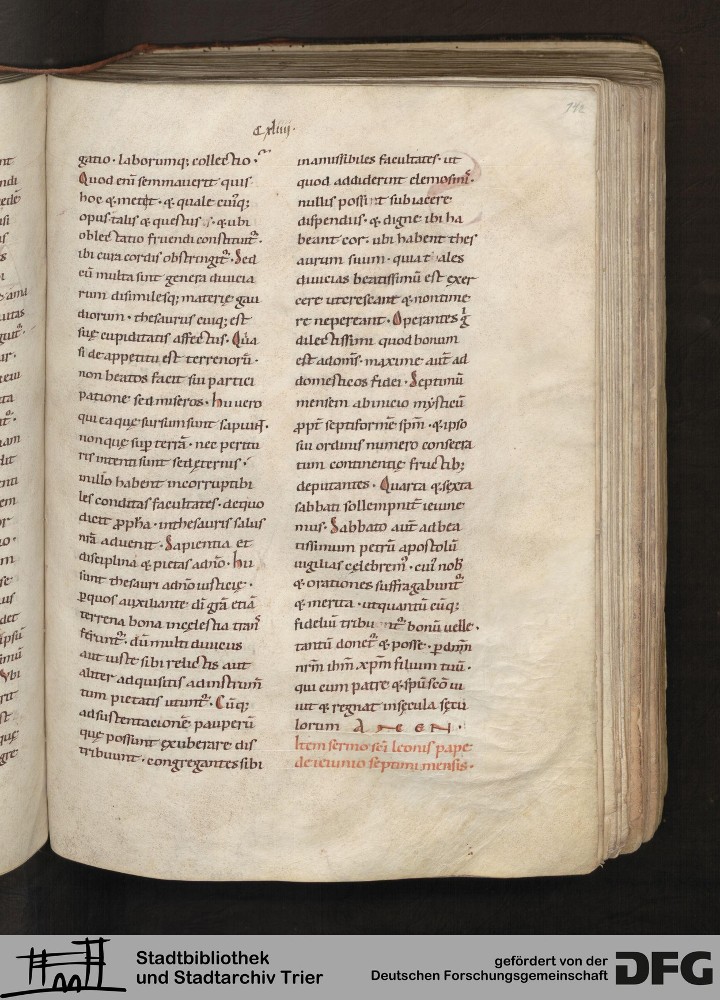 Cxliiii·
142
gatio· laborumq; collectio·
Quod eni͞ seminauerit quis·
hoc & metet· & quale cuiq;
opus talis & questus· & ubi
oblectatio fruendi constituit᷑·
ibi cura cordis obstringit᷑· Sed
eu͞ multa sint genera diuicia
rum disimilesq; materię gau
diorum· thesaurus cuiq; est
suę cupiditatis affectus· Qui
si de appetitu est terrenoru͞·
non beatos facit sui partici
patione sed miseros· hii uero
qui ea quę sursum sunt sapiunt·
non quę sup terra͞· nec peritu
ris intenti sunt sed ęternis·
in illo habent incorruptibi
les conditas facultates· de quo
dicit ꝓpha· in thesauris salus
nr͞a aduenit· Sapientia et
disciplina & pietas a dn͞o· hii
sunt thesauri a dn͞o iusticię·
ꝑ quos auxiliante di͞ gr͞a etia͞
terrena bona in cęlestia tran͞s
ferunt᷑· du͞ multi diuiciis
aut iuste sibi relictis aut
aliter adquisitis ad instrum͞
tum pietatis utunt᷑· Cu͞q;
ad sustentacione͞ pauperu͞
que possunt exuberare dis
tribuunt· congregantes sibi
inamissibiles facultates· ut
quod addiderint elemosinis·
nullis possint subiacere
dispendiis· & digne ibi ha
beant cor· ubi habent thes
aurum suum· quia tales
diuicias beatissimu͞ est exer
cere ut crescant & non time
re ne pereant· Operantes g̊
dilectissimi quod bonum
est ad om͞s· maxime aut͞ ad
domesticos fidei· Septimu͞
mensem ab inicio mysticu͞
ꝓpt͞ septiforme͞ sp͞m· & ipso
sui ordinis numero consecra
tum continentię fructib;
deputantes· Quarta & sexta
sabbati sollempnit͞ ieiune
mus· Sabbato aut͞ ad bea
tissimum petru͞ apostolu͞
uigilias celebrem᷑· cui᷑ nob͞
& orationes suffragabunt᷑
& merita· ut quantu͞ cu͞q;
fideliu͞ tribuit᷑ bonu͞ uelle·
tantu͞ donet᷑ & posse· p dn͞m
nr͞m ih͞m xp͞m filium tuu͞·
qui cum patre & sp͞u sc͞o ui
uit & regnat in sęcula sęcu
lorum A M E N·
Item sermo sc͞i leonis pape
de ieiunio septimi mensis·
Stadtbibliothek
und Stadtarchiv Trier
gefördert von der
Deutschen Forschungsgemeinschaft
DFG